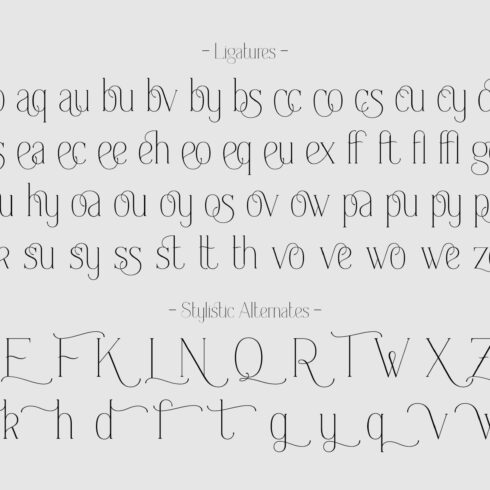 - Ligatures -
aq au bu bv by bs cc co cs cu cy
ea ec ee eh eo eq eu ex ff ft fl ffl
hy oa ou oy os ov ow pa pu py
su sy ss st tt th vo ve wo we
- Stylistic Alternates -
E F K L N Q R T W X Z
k h d f t g y q v